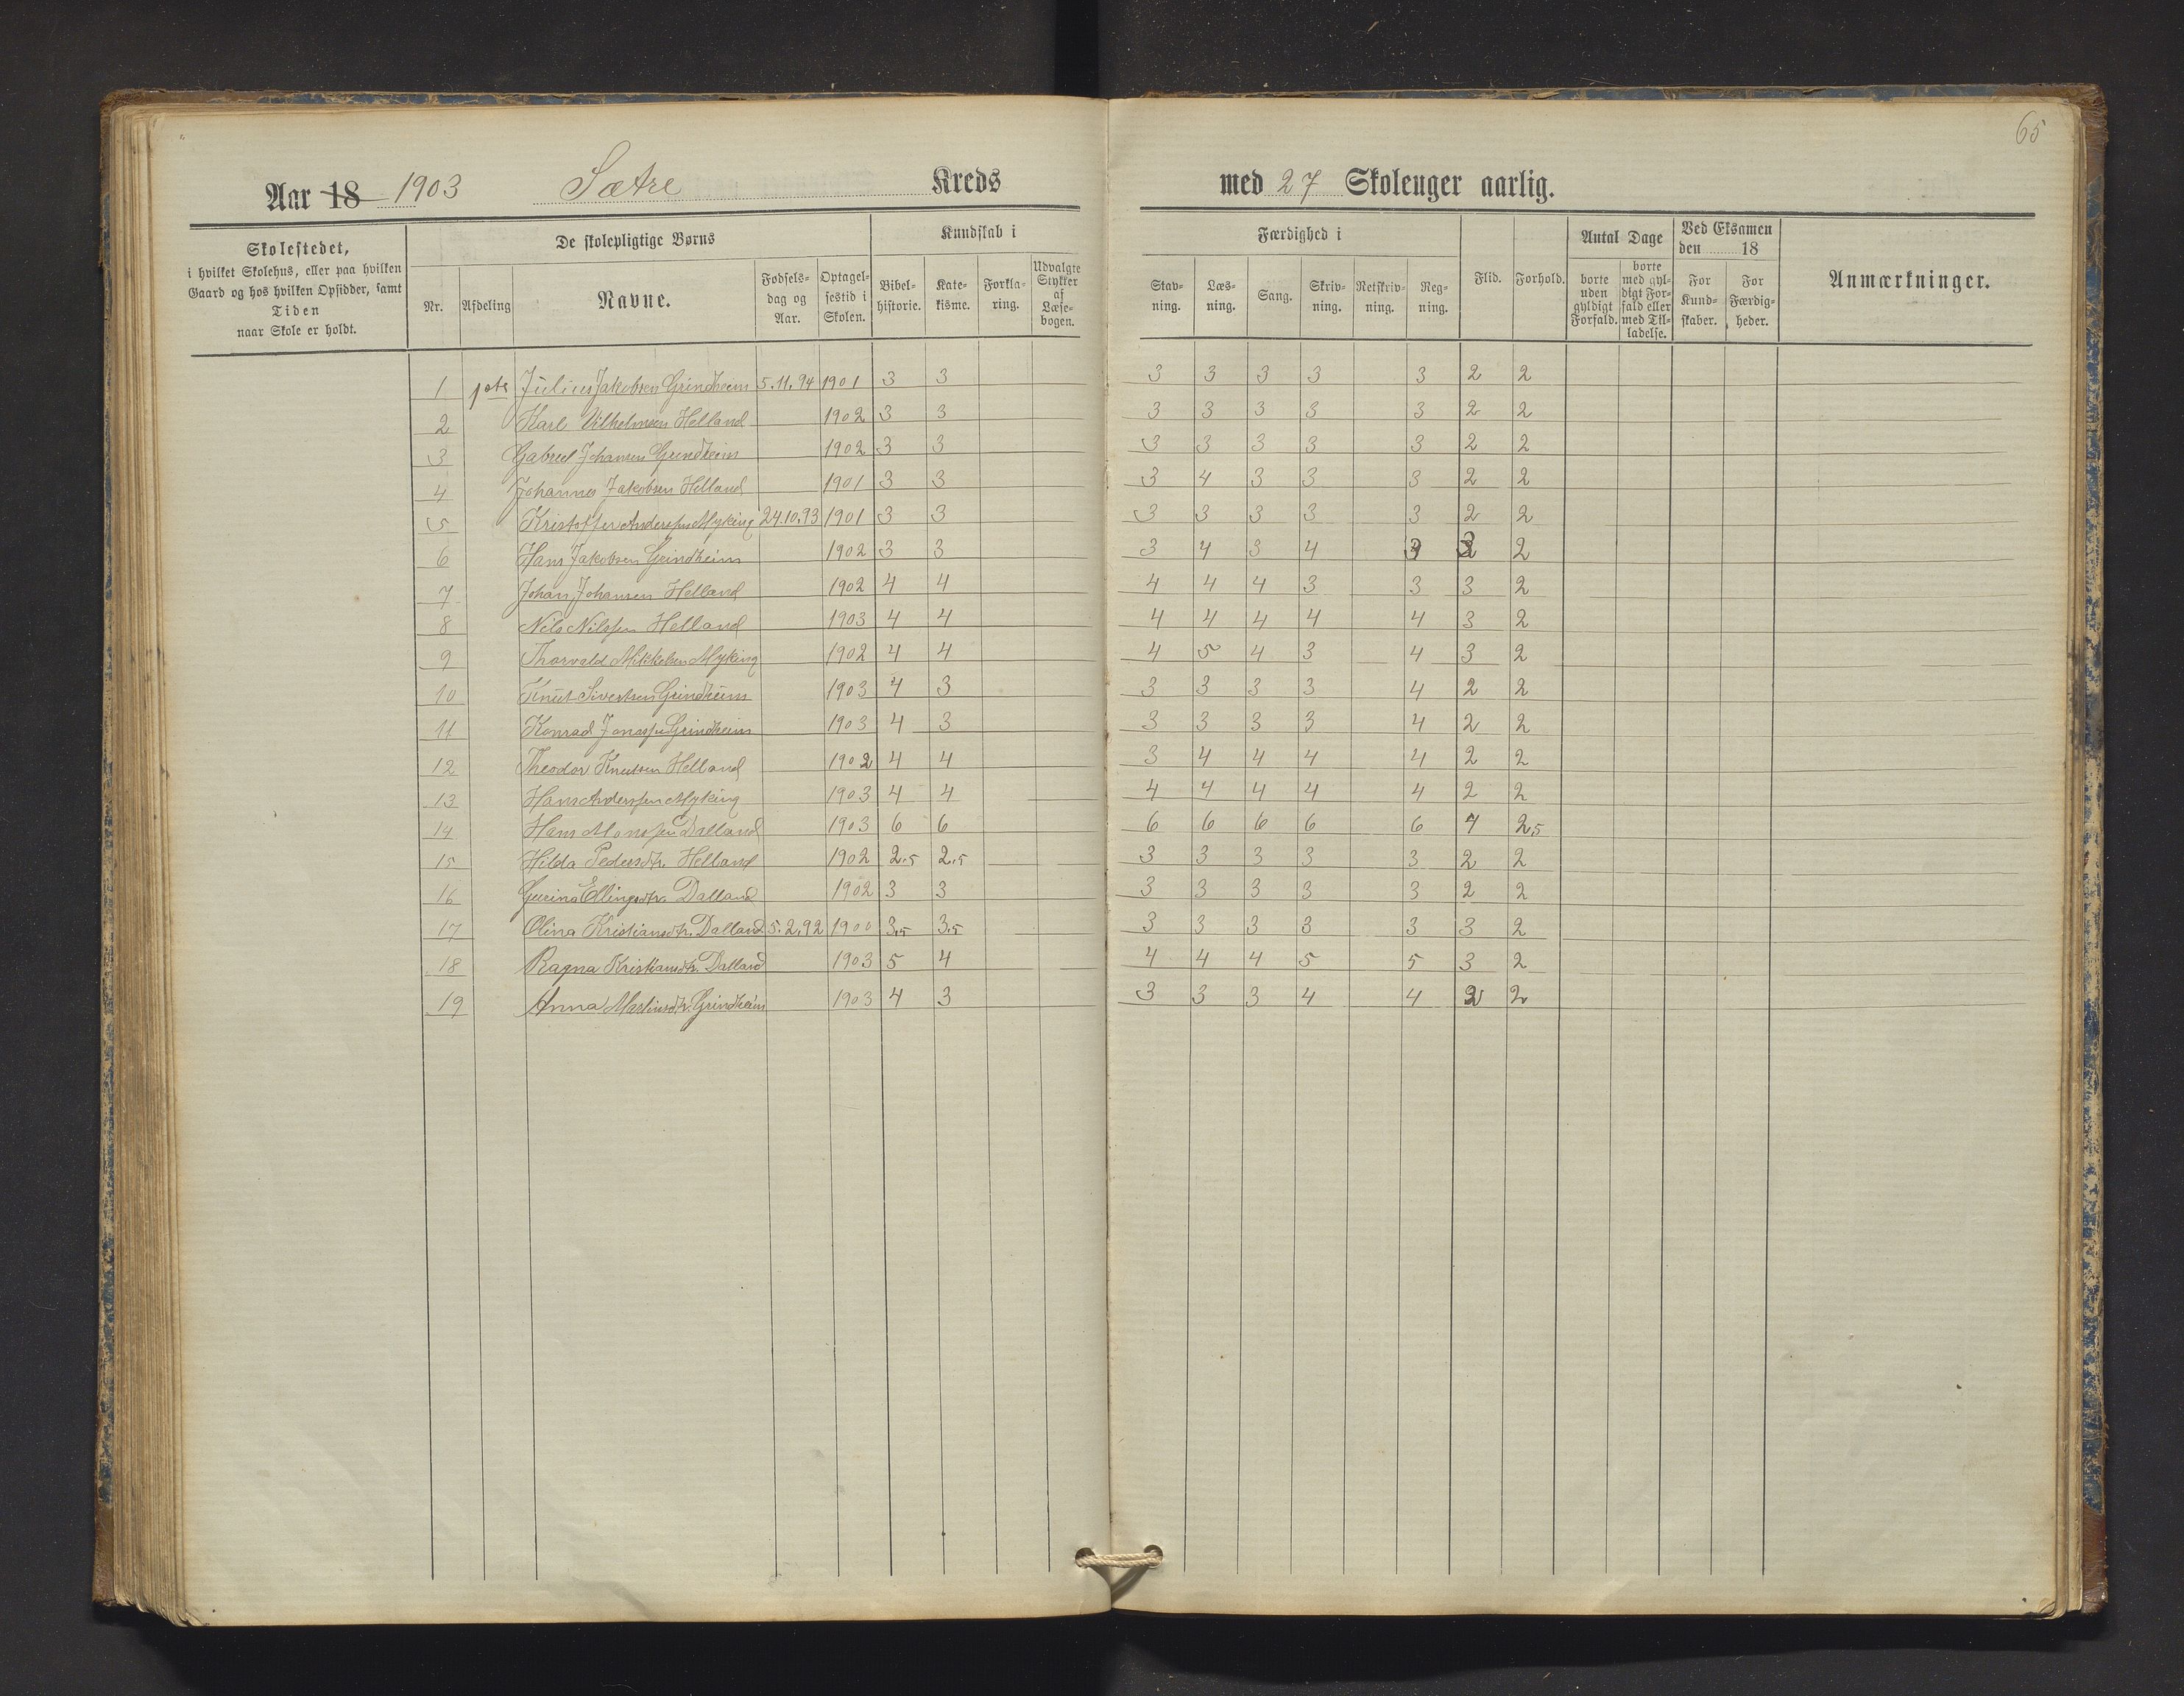 65
Aar 18 1903 Sætre Kreds med 27 Skoleuger aarlig.
Skolestedet,
i hvilket Skolehus, eller paa hvilken
Gaard og hos hvilken Opsidder, samt
Tiden
naar Skole er holdt.
De skolepligtige Børns
Nr. Afdeling Navne. Fødsels-
dag og
Aar. Optagel-
sestid i
Skolen.
Kundskab i
Bibel-
historie. Kate-
kisme. Forkla-
ring. Udvalgte
Stykker
af
Læse-
bogen.
Færdighed i
Stav-
ning. Læs-
ning. Sang. Skriv-
ning. Retskriv-
ning. Reg-
ning.
Flid. Forhold.
Antal Dage
borte
uden
gyldigt
Forfald. borte
med gyl-
digt For-
fald eller
med Til-
ladelse.
Ved Eksamen
den 18
For
Kund-
skaber. For
Færdig-
heder.
Anmærkninger.
1 Julius Jakobsen Grindheim 5.11.94 1901 3 3 3 3 3 3 3 2 2
2 Karl Vilhelmsen Helland 1902 3 3 3 3 3 3 3 2 2
3 Gabriel Johansen Grindheim 1902 3 3 3 3 3 3 3 2 2
4 Johannes Jakobsen Helland 1901 3 3 3 4 3 3 3 2 2
5 Kristoffer Anderssen Myking 24.10.93 1901 3 3 3 3 3 3 3 2 2
6 Hans Jakobsen Grindheim 1902 3 3 3 4 3 4 2
7 Johan Johansen Helland 1902 4 4 4 4 4 3 3 3 2
8 Nils Nilssen Helland 1903 4 4 4 4 4 4 4 3 2
9 Thorvald Mikkelsen Myking 1902 4 4 4 5 4 3 4 3 2
10 Knut Sivertsen Grindheim 1903 4 3 3 3 3 3 4 2 2
11 Konrad Jonassen Grindheim 1903 4 3 3 3 3 3 4 2 2
12 Theodor Knutsen Helland 1902 4 4 3 4 4 4 4 2 2
13 Hans Anderssen Myking 1903 4 4 4 4 4 4 4 2 2
14 Hans Monssen Dalland 1903 6 6 6 6 6 6 6 4 2,5
15 Hilda Pedersdtr. Helland 1902 2,5 2,5 3 3 3 3 3 2 2
16 Gurina Ellingsdtr. Dalland 1902 3 3 3 3 3 3 3 2 2
17 Olina Kristiansdtr. Dalland 5.2.92 1900 3,5 3,5 3 3 3 3 3 3 2
18 Ragna Kristiansdtr. Dalland 1903 5 4 4 4 4 5 5 3 2
19 Anna Martinsdtr. Grindheim 1903 4 3 3 3 3 4 4 2